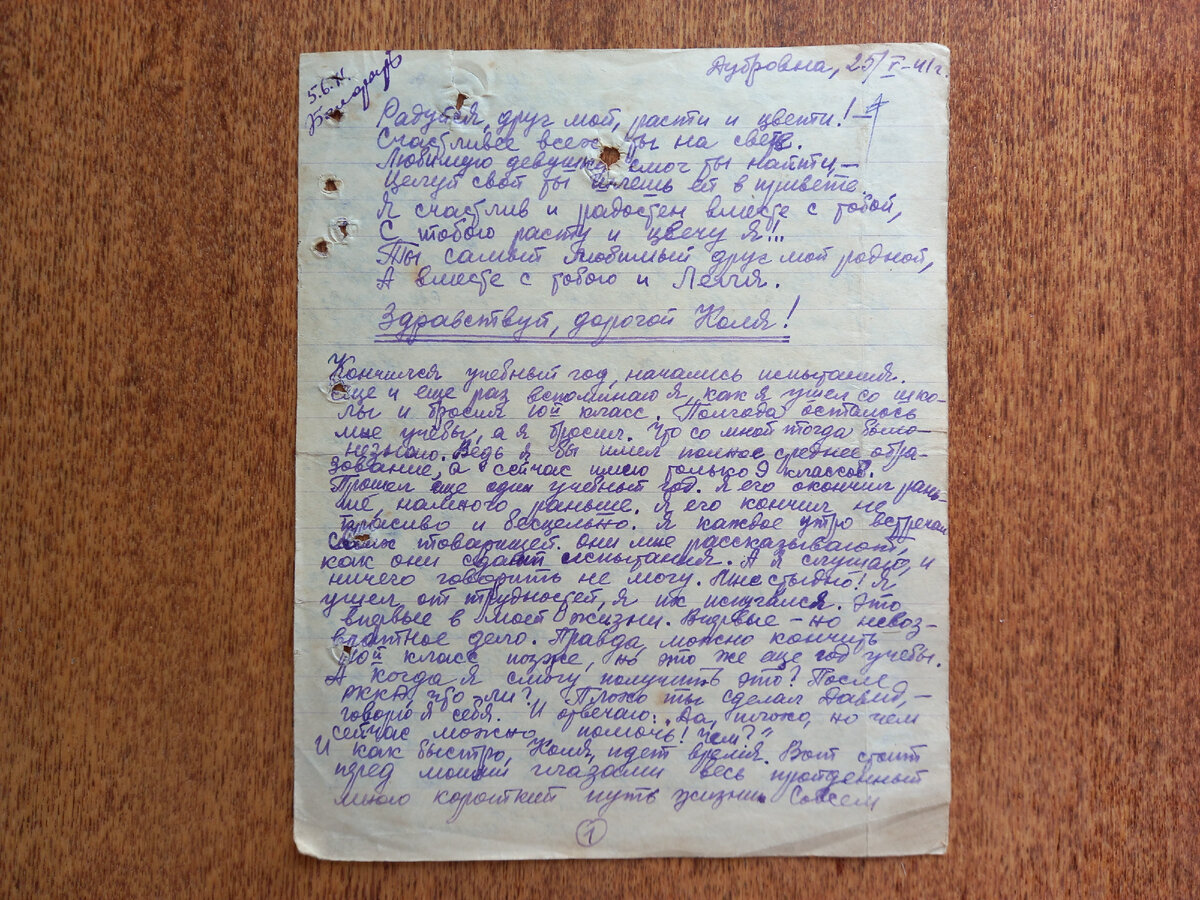 Дубровна, 25/V-41г.
5.6.
Радуйся, друг мой, расти и цвети! –
Счастливее всех ты на свете.
Любимую девушку смог ты найти, –
Целуй свой ты шлешь ей в привете.
Я счастлив и радостен вместе с тобой,
С тобою расту и цвечу я!!..
Ты самый любимый друг мой родной,
А вместе с тобою и
Здравствуй, дорогой Коля!
Кончился учебный год, начались испытания.
Еще и еще раз вспоминаю я, как я ушел со шко-
лы и бросил 10й класс. Полгода осталось
мне учебы, а я бросил. Что со мной тогда было –
незнаю. Ведь я бы имел полное среднее обра-
зование, а сейчас имею только 9 классов.
Прошел еще один учебный год. Я его окончил рань-
ше, намного раньше. Я его кончил не
красиво и бесцельно. Я каждое утро встречаю
своих товарищей. Они мне рассказывают,
как они сдают испытания. А я слушаю, и
ничего говорить не могу. Мне стыдно! Я
ушел от трудностей, я их испугался. Это
впервые в моей жизни. Впервые – но невоз-
вратное дело. Правда, можно кончить
10й класс позже, но это же еще год учебы.
А когда я смогу получить это? После
РККА, что ли? Плохо ты сделал Давид, –
говорю я себя. И отвечаю: „Да, плохо, но чем
сейчас можно помочь! Чем?"
И как быстро, Коля, идет время. Вот стоит
перед моими глазами весь пройденный
мною короткий путь жизни. Совсем
1